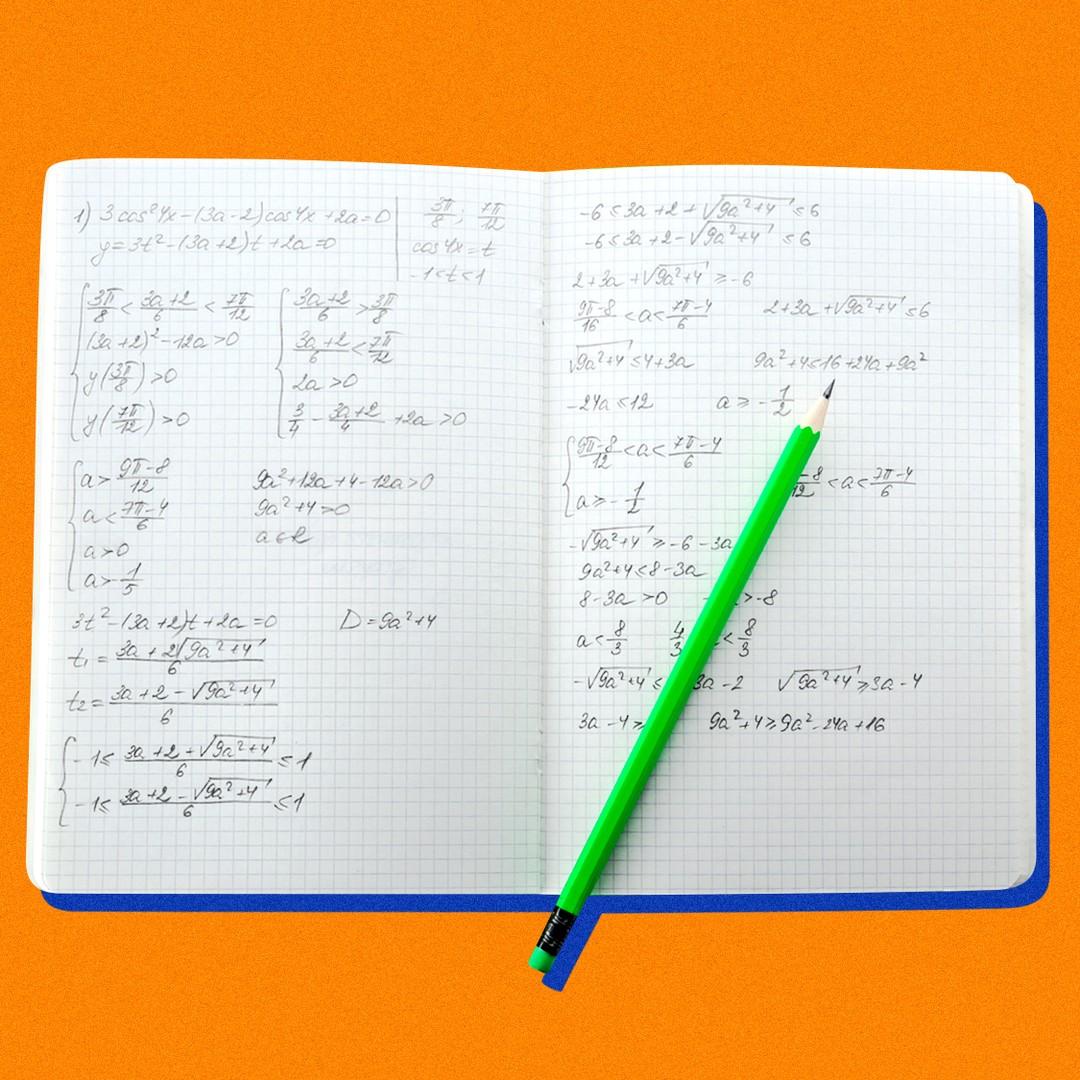 1) 3cos²4x-(3a-2)cos4x+2a=0 | 3π/8; 7π/12
y=3t²-(3a+2)t+2a=0 | cos4x=t
-1<t<1
{ 3π/8 < (3a+2)/6 < 7π/12
(3a+2)²-12a>0
y(3π/8)>0
y(7π/12)>0
{ (3a+2)/6 > 3π/8
(3a+2)/6 < 7π/12
2a>0
3/4 - (3a+2)/4 + 2a > 0
{ a > (9π-8)/12
a < (7π-4)/6
a>0
a>-1/5
9a²+12a+4-12a>0
9a²+4>0
a∈R
3t²-(3a+2)t+2a=0 D=9a²+4
t₁ = (3a+2√(9a²+4))/6
t₂ = (3a+2-√(9a²+4))/6
{ -1≤ (3a+2+√(9a²+4))/6 ≤1
-1≤ (3a+2-√(9a²+4))/6 ≤1
-6≤3a+2+√(9a²+4)≤6
-6≤3a+2-√(9a²+4)≤6
2+3a+√(9a²+4)≥-6
(9π-8)/16 <a< (7π-4)/6 2+3a+√(9a²+4)≤6
√(9a²+4)≤4+3a 9a²+4≤16+24a+9a²
-24a≤12 a≥-1/2
{ (9π-8)/12 <a< (7π-4)/6
a≥-1/2
-8/12 <a< (7π-4)/6
-√(9a²+4)≥-6-3a
9a²+4≤8-3a
8-3a>0 >-8
a<8/3 4/3 <8/3
-√(9a²+4)≤ 3a-2 √(9a²+4)≥3a-4
3a-4≥ 9a²+4≥9a²-24a+16